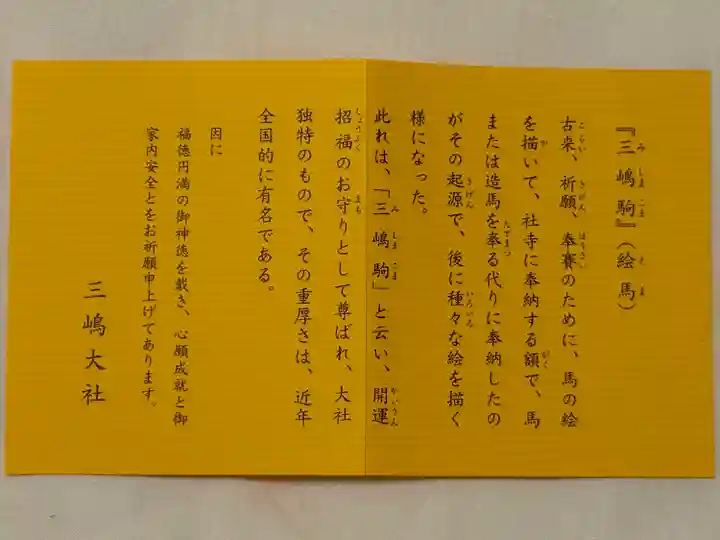 『三嶋駒』(絵馬)
古来、祈願、奉賽のために、馬の絵
を描いて、社寺に奉納する額で、馬
または造馬を奉る代りに奉納したの
がその起源で、後に種々な絵を描く
様になった。
此れは、「三嶋駒」と云い、開運
招福のお守りとして尊ばれ、大社
独特のもので、その重厚さは、近年
全国的に有名である。
因に
福徳円満の御神徳を戴き、心願成就と御
家内安全とをお祈願申上げてあります。
三嶋大社